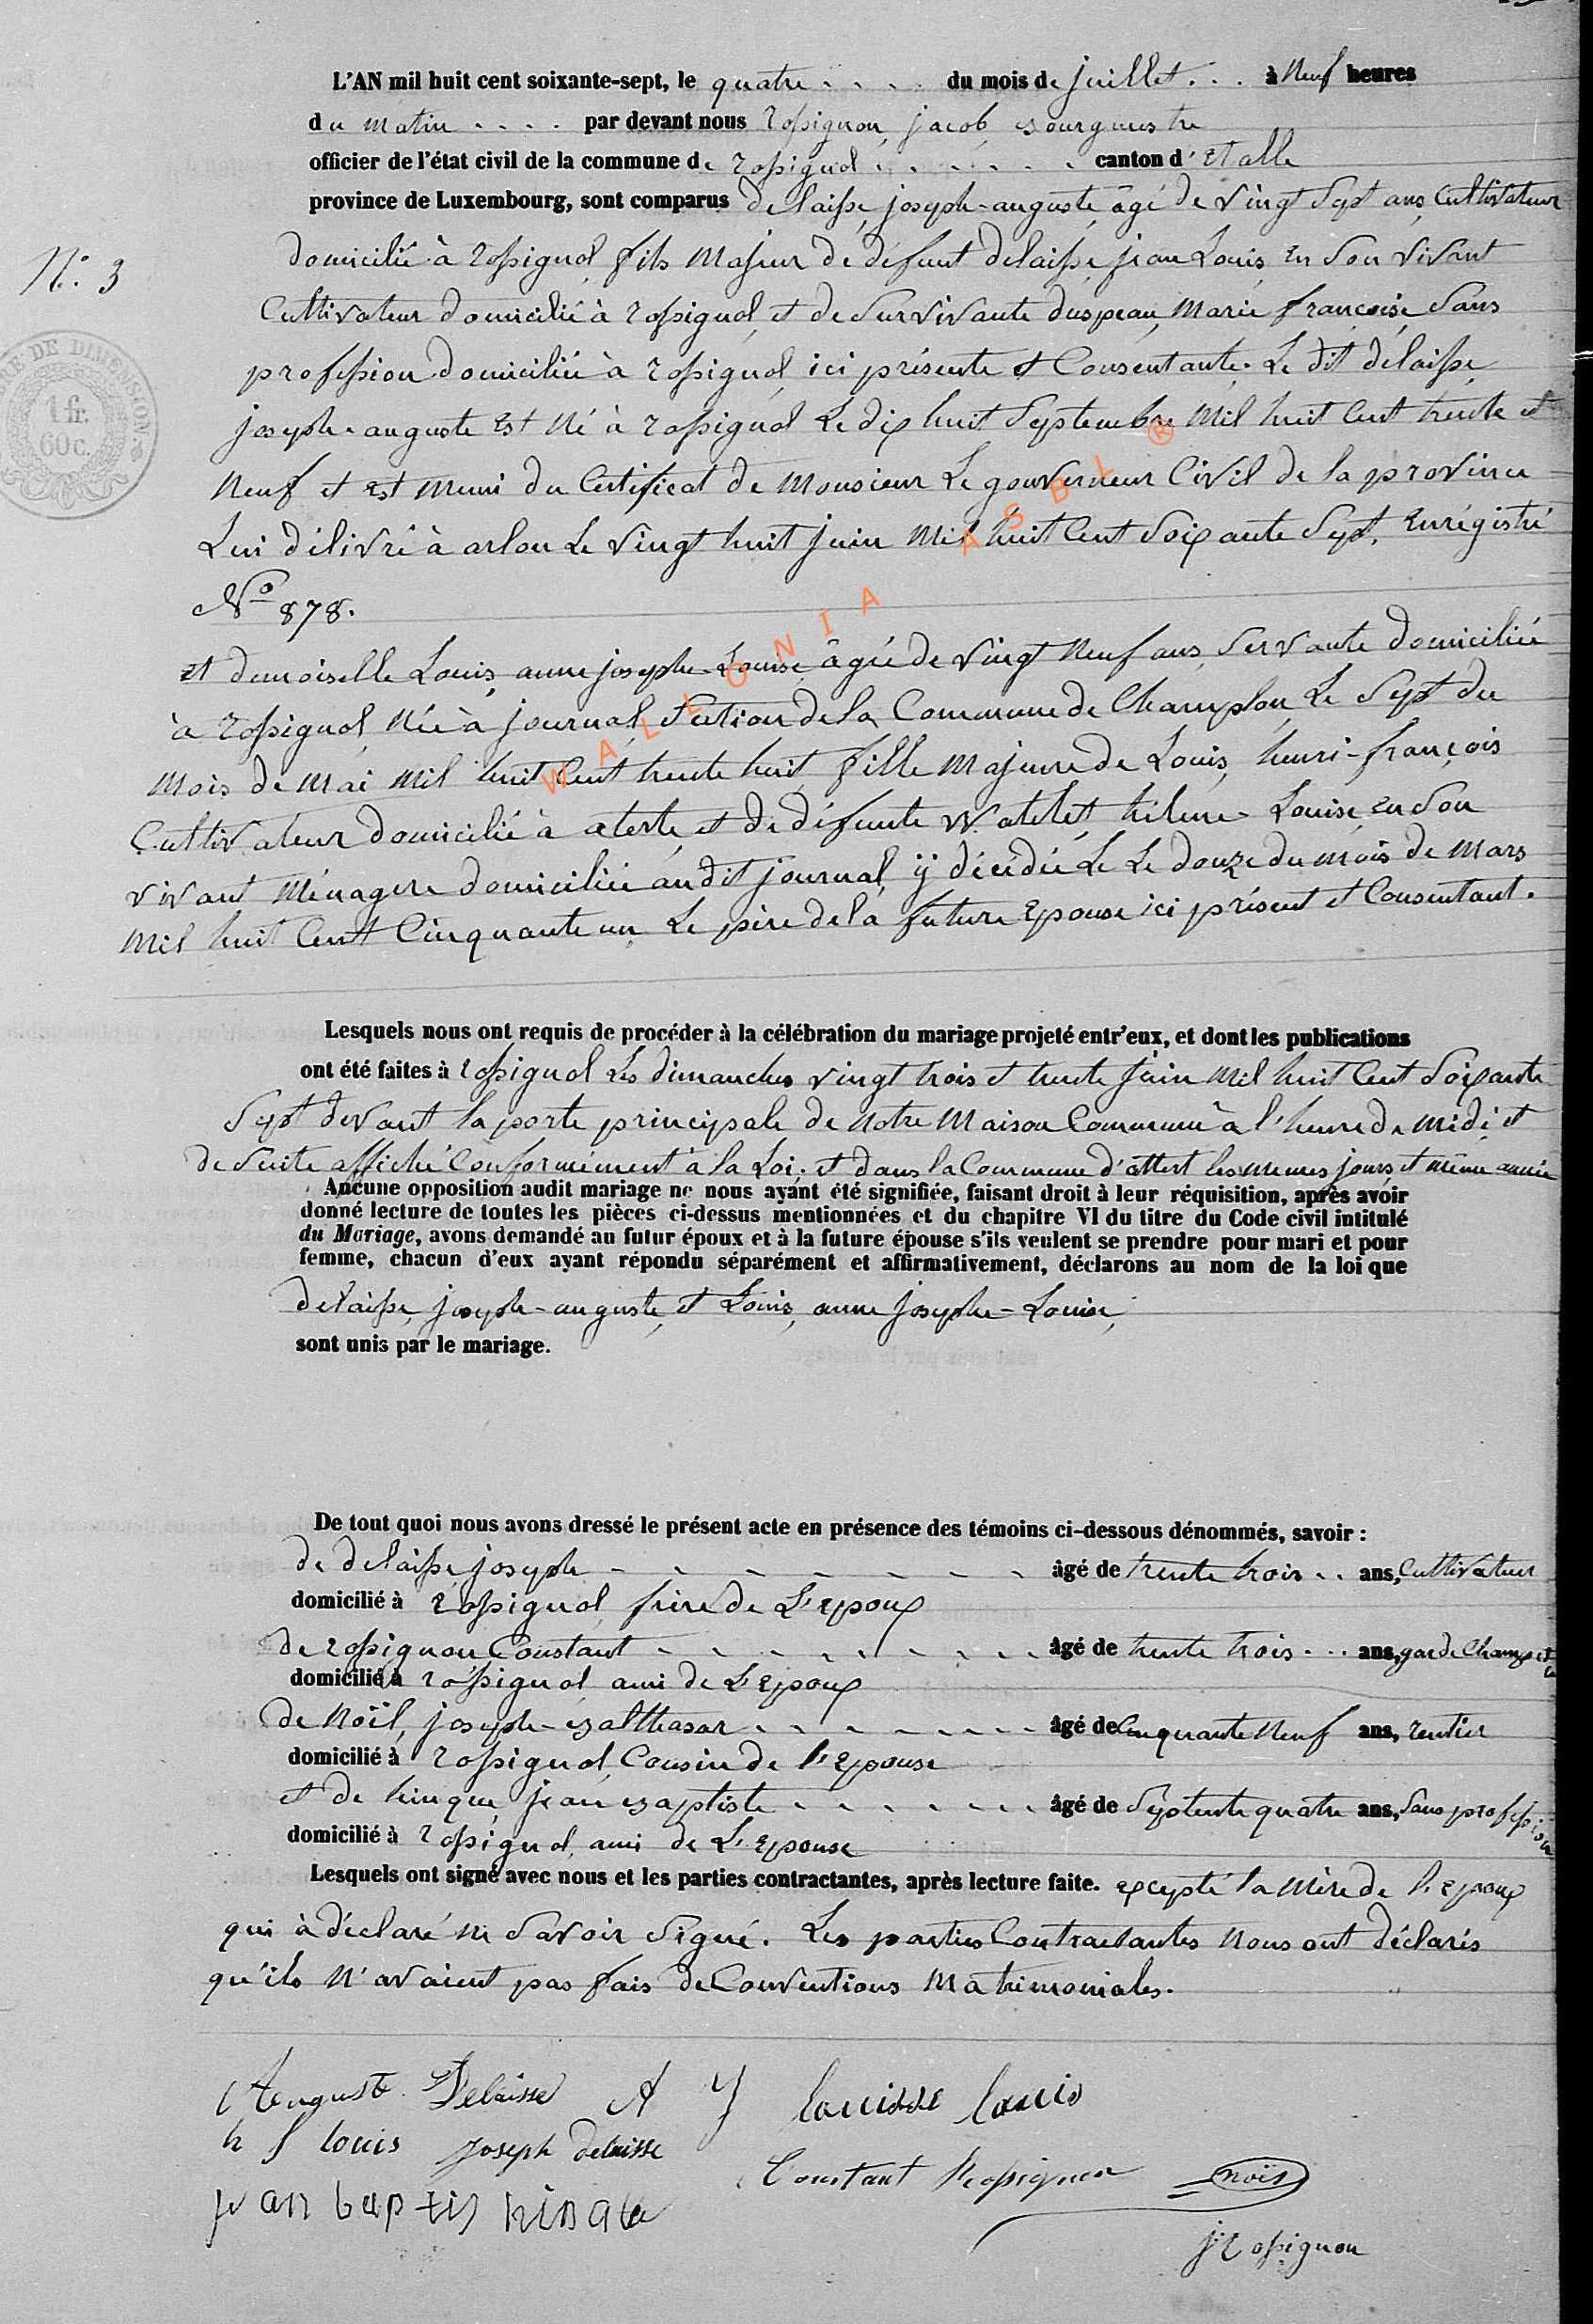 L'AN mil huit cent soixante-sept, le quatre . . . . du mois de juillet . . . à Neuf heures
du matin . . . . par devant nous Rossignon, jacob, Bourgmestre
officier de l'état civil de la commune de Rossignol . . . . . . canton d'Etalle
province de Luxembourg, sont comparus delaisse, joseph-auguste, âgé de vingt sept ans, Cultivateur
N.° 3
domicilié à Rossignol, fils majeur de défunt delaisse, jean Louis, en son vivant
Cultivateur domicilié à Rossignol, et de survivante duspeau, Marie françoise, sans
profession domiciliée à Rossignol, ici présente et Consentante. Le dit delaisse,
joseph-auguste est Né à Rossignol Le dix huit Septembre mil huit Cent trente et
Neuf et est muni du Certificat de Monsieur Le gouverneur Civil de la province
Lui délivré à arlon Le vingt huit juin mil huit Cent Soixante Sept. Enrégistré
N° 878.
et demoiselle Louis, anne josephe-Louise, âgée de vingt Neuf ans, Servante domiciliée
à Rossignol, Née à journal, Section de la Commune de Champlon, Le Sept du
mois de mai mil huit Cent trente huit, fille majeure de Louis, henri-françois
Cultivateur domicilié à alerte, et de défunte Watelet hélene-Louise, en son
vivant Ménagere domiciliée au dit journal, ÿ décédée Le Le douze du mois de mars
mil huit Cent Cinquante un Le père de la future Epouse ici présent et Consentant.
Lesquels nous ont requis de procéder à la célébration du mariage projeté entr'eux, et dont les publications
ont été faites à Rossignol Les dimanches vingt trois et trente juin mil huit Cent Soixante
Sept devant la porte principale de Notre Maison Commune à l'heure de midi et
de suite affiché Conformément à la Loi. et dans la Commune d'attert les memes jours et même année
Aucune opposition audit mariage ne nous ayant été signifiée, faisant droit à leur réquisition, après avoir
donné lecture de toutes les pièces ci-dessus mentionnées et du chapitre VI du titre du Code civil intitulé
du Mariage, avons demandé au futur époux et à la future épouse s'ils veulent se prendre pour mari et pour
femme, chacun d'eux ayant répondu séparément et affirmativement, déclarons au nom de la loi que
delaisse, joseph-auguste, et Louis, anne josephe-Louise,
sont unis par le mariage.
De tout quoi nous avons dressé le présent acte en présence des témoins ci-dessous dénommés, savoir :
de delaisse, joseph - - - - - - - âgé de trente trois . . ans, Cultivateur
domicilié à Rossignol, frère de L'Epoux
de Rossignon Constant - - - - - - - âgé de trente trois . . . ans, garde Champêtre
domicilié à Rossignol ami de L'Epoux
de Noïl, joseph-Balthasar - - - - - - - âgé de Cinquante Neuf ans, rentier
domicilié à Rossignol, Cousin de l'Epouse
et de hinque, jean Baptiste - - - - - - - âgé de Septente quatre ans, Sans profession
domicilié à Rossignol, ami de L'Epouse
Lesquels ont signé avec nous et les parties contractantes, après lecture faite. excepté la Mère de l'Epoux
qui à déclaré ne Savoir Signé. Les parties Contractantes nous ont déclarés
qu'ils N'avaient pas fais de Conventions Matrimoniales.
Auguste Delaisse A J Louisse Louis
h f louis Joseph delaisse
Constant Rossignon noïs
jean baptis hinque
j Rossignon
1 fr.
60 c.
WALLONIA ASBL ®